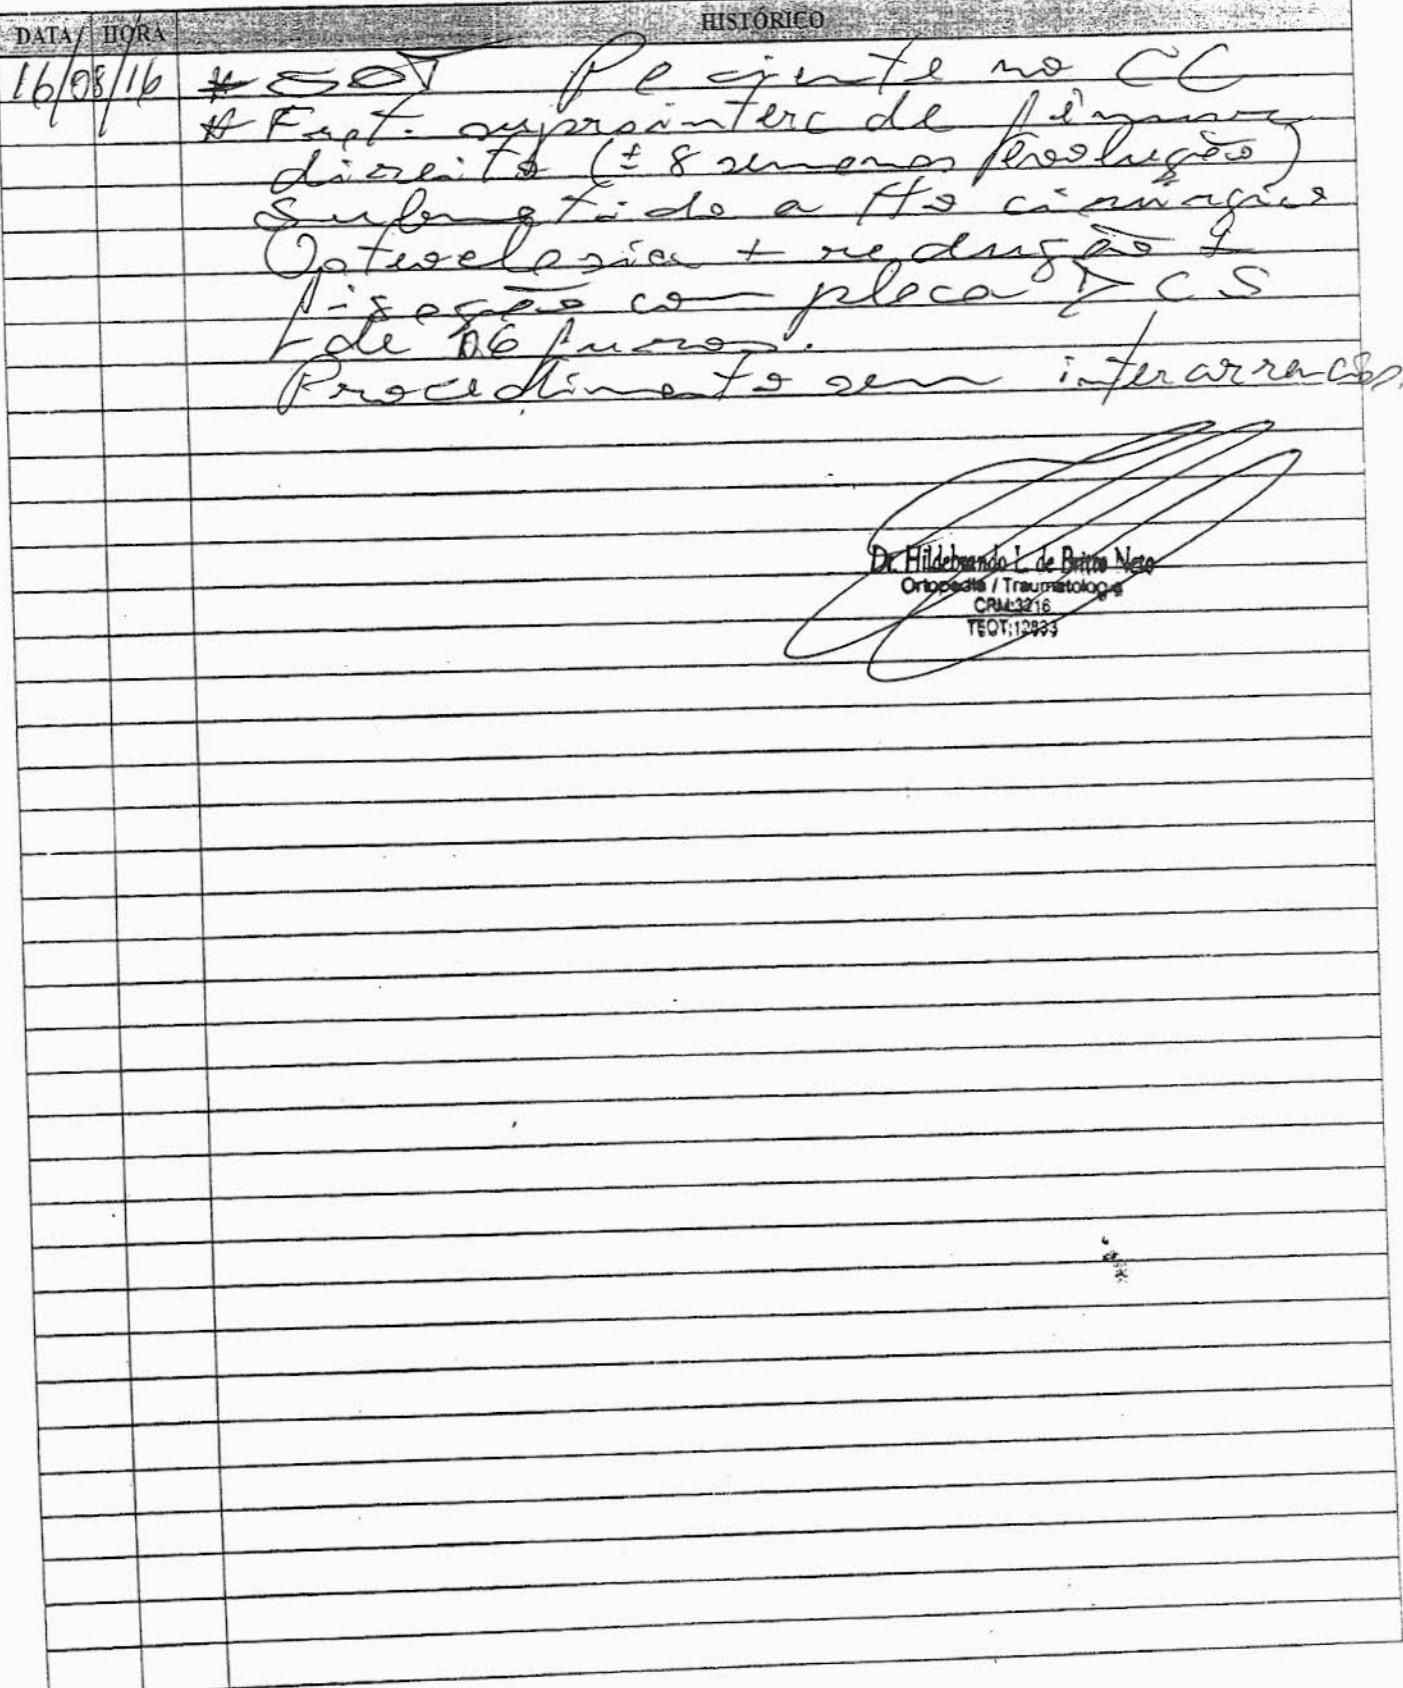 DATA/ HORA HISTÓRICO
16/08/16 # SOT Paciente no CC
# Frat. suprainterc de fêmur
direito (± 8 semanas evolução)
Submetido a tto cirúrgico
Osteoclasia + redução +
fixação com placa DCS
de 16 furos.
Procedimento sem intercorrencias.
Dr. Hildebrando L. de Britto Neto
Ortopedia / Traumatologia
CRM:3216
TEOT:12833